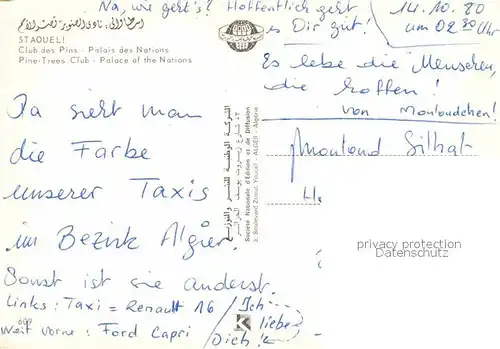 Na, wie geht's? Hoffentlich geht
es Dir gut!
14.10.80
um 02 30 Uhr
STAOUELI
Club des Pins - Palais des Nations
Pine-Trees Club - Palace of the Nations
Es lebe die Menschen,
die hoffen!
von
Da sieht man
die Farbe
unserer Taxis
im Bezirk Algier.
Sonst ist sie anderst.
Links: Taxi = Renault 16
Weit vorne: Ford Capri
Ich
liebe
Dich!
الشركة الوطنية للنشر والتوزيع
Société Nationale d'Edition et de Diffusion
3, Boulevard Zirout Youcef - ALGER - Algérie
609
K
privacy protection
Datenschutz